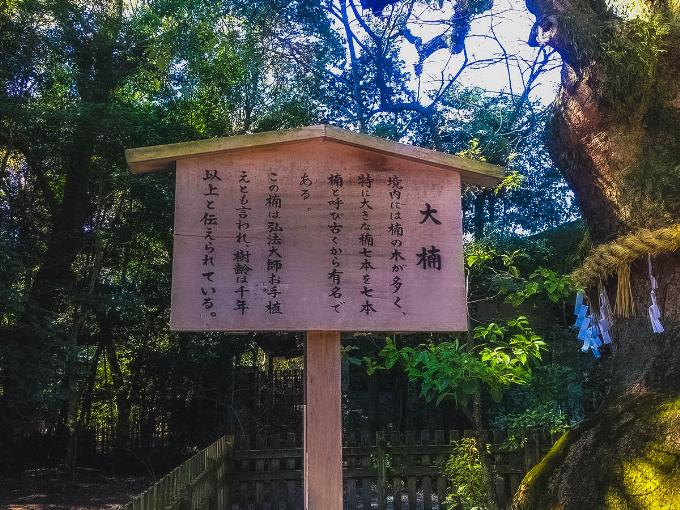 大楠
境内には楠の木が多く、
特に大きな楠七本を七本
楠と呼び古くから有名で
ある
この楠は弘法大師お手植
えとも言われ、樹齢は千年
以上と伝えられている。